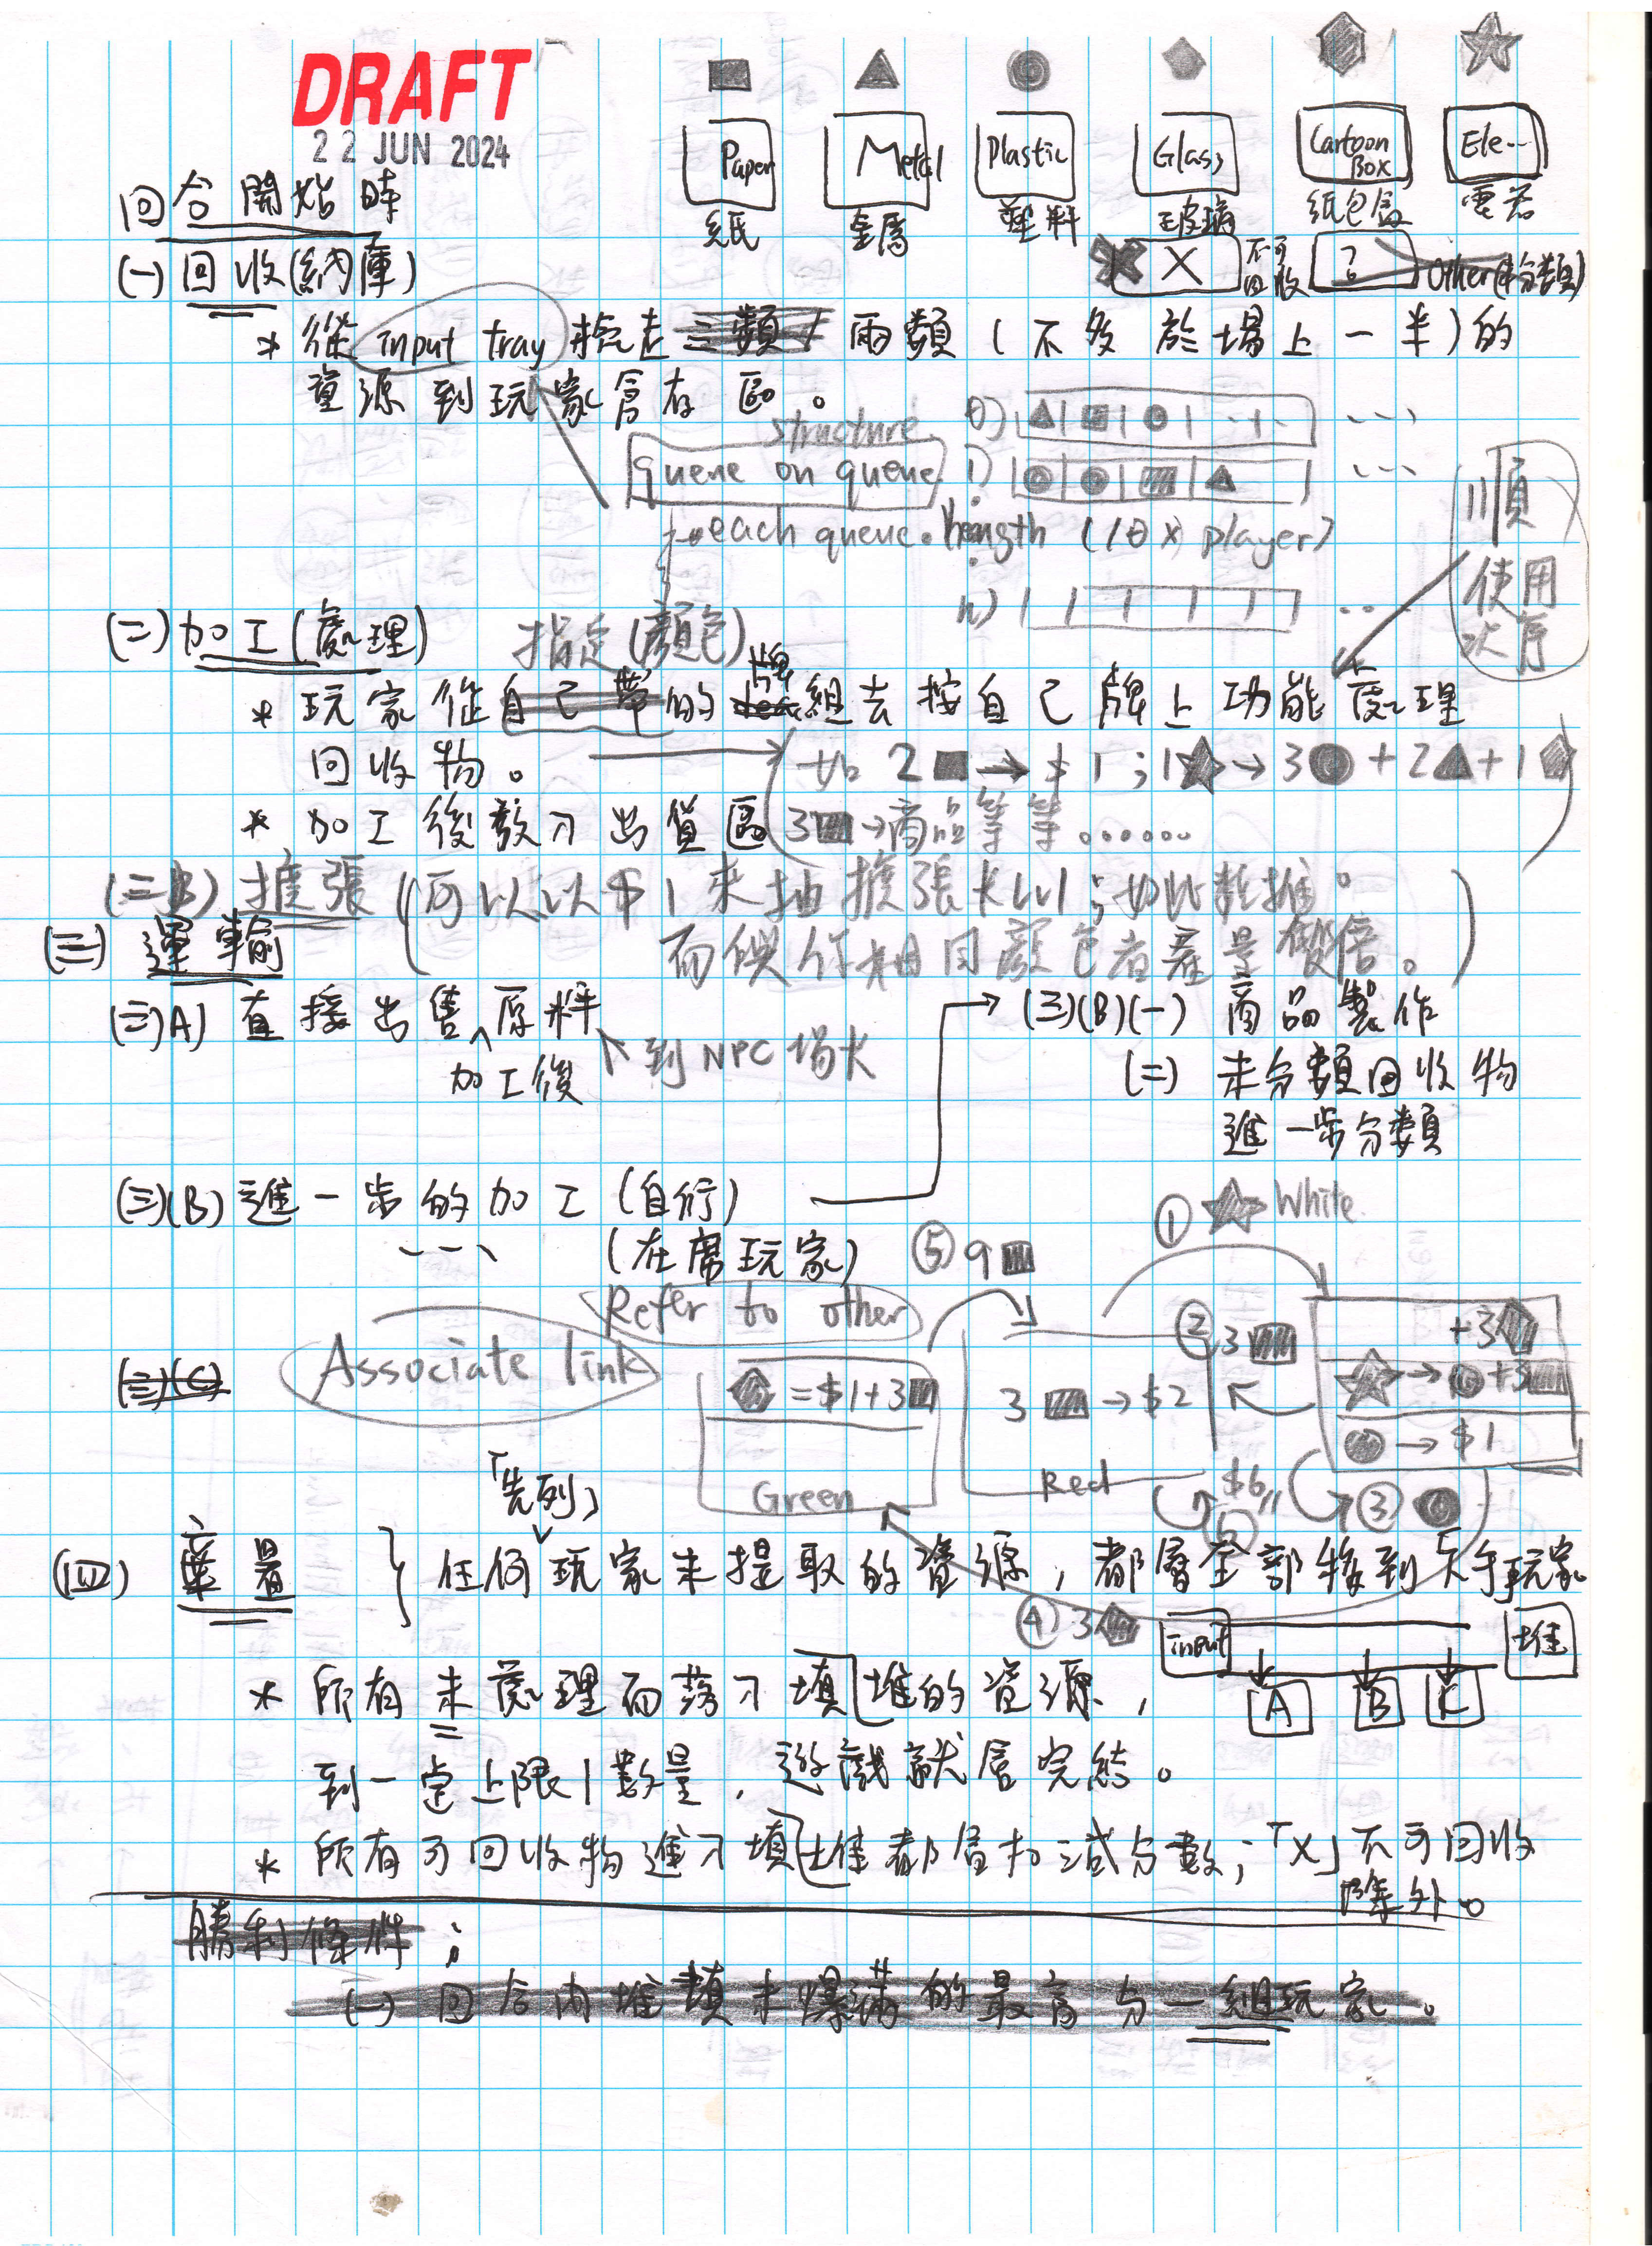 DRAFT
22 JUN 2024
Paper
Metal
Plastic
Glass
Cartoon Box
Ele...
紙
金屬
塑料
玻璃
紙包盒
電器
回合開始時
X
不可回收
?
Other(未分類)
(一) 回收(納庫)
* 從 input tray 拾走三類/兩類(不多於場上一半)的
資源到玩家儲存區。
structure
queue on queue
0)
1)
each queue.length (10 x player)
n)
順
使用
次序
(二) 加工(處理)
指定(顏色)
* 玩家從自己帶的牌組去按自己牌上功能處理
回收物。
如 2■→$1;1★→3●+2▲+1⬟
* 加工後放入出貨區
3■→商品等等......
(二B) 擴張 (可以以$1來抽擴張卡LV1;如此類推。
而製作相同顏色者產量雙倍。)
(三) 運輸
(三)A) 直接出售原料
加工後
到NPC場大
(三)(B)(一) 商品製作
(二) 未分類回收物
進一步分類
(三)(B) 進一步的加工(自行)
(在席玩家)
① ★ White
⑤ 9■
Refer to other
(三)(C)
Associate link
⬢=$1+3■
Green
3■→$2
Red
② 3■
+3⬢
★→●+3■
●→$1
$6
③ ●
「先列」
(四) 棄置
任何玩家未提取的資源,都會全部移到下手玩家
④ 3⬢
input
堆
A
B
C
* 所有未處理而落入堆填的資源,
到一定上限數量,遊戲就會完結。
* 所有可回收物進入堆填都會扣減分數;「X」不可回收
除外。
勝利條件:
(一) 回合內堆填未爆滿的最高分一組玩家。